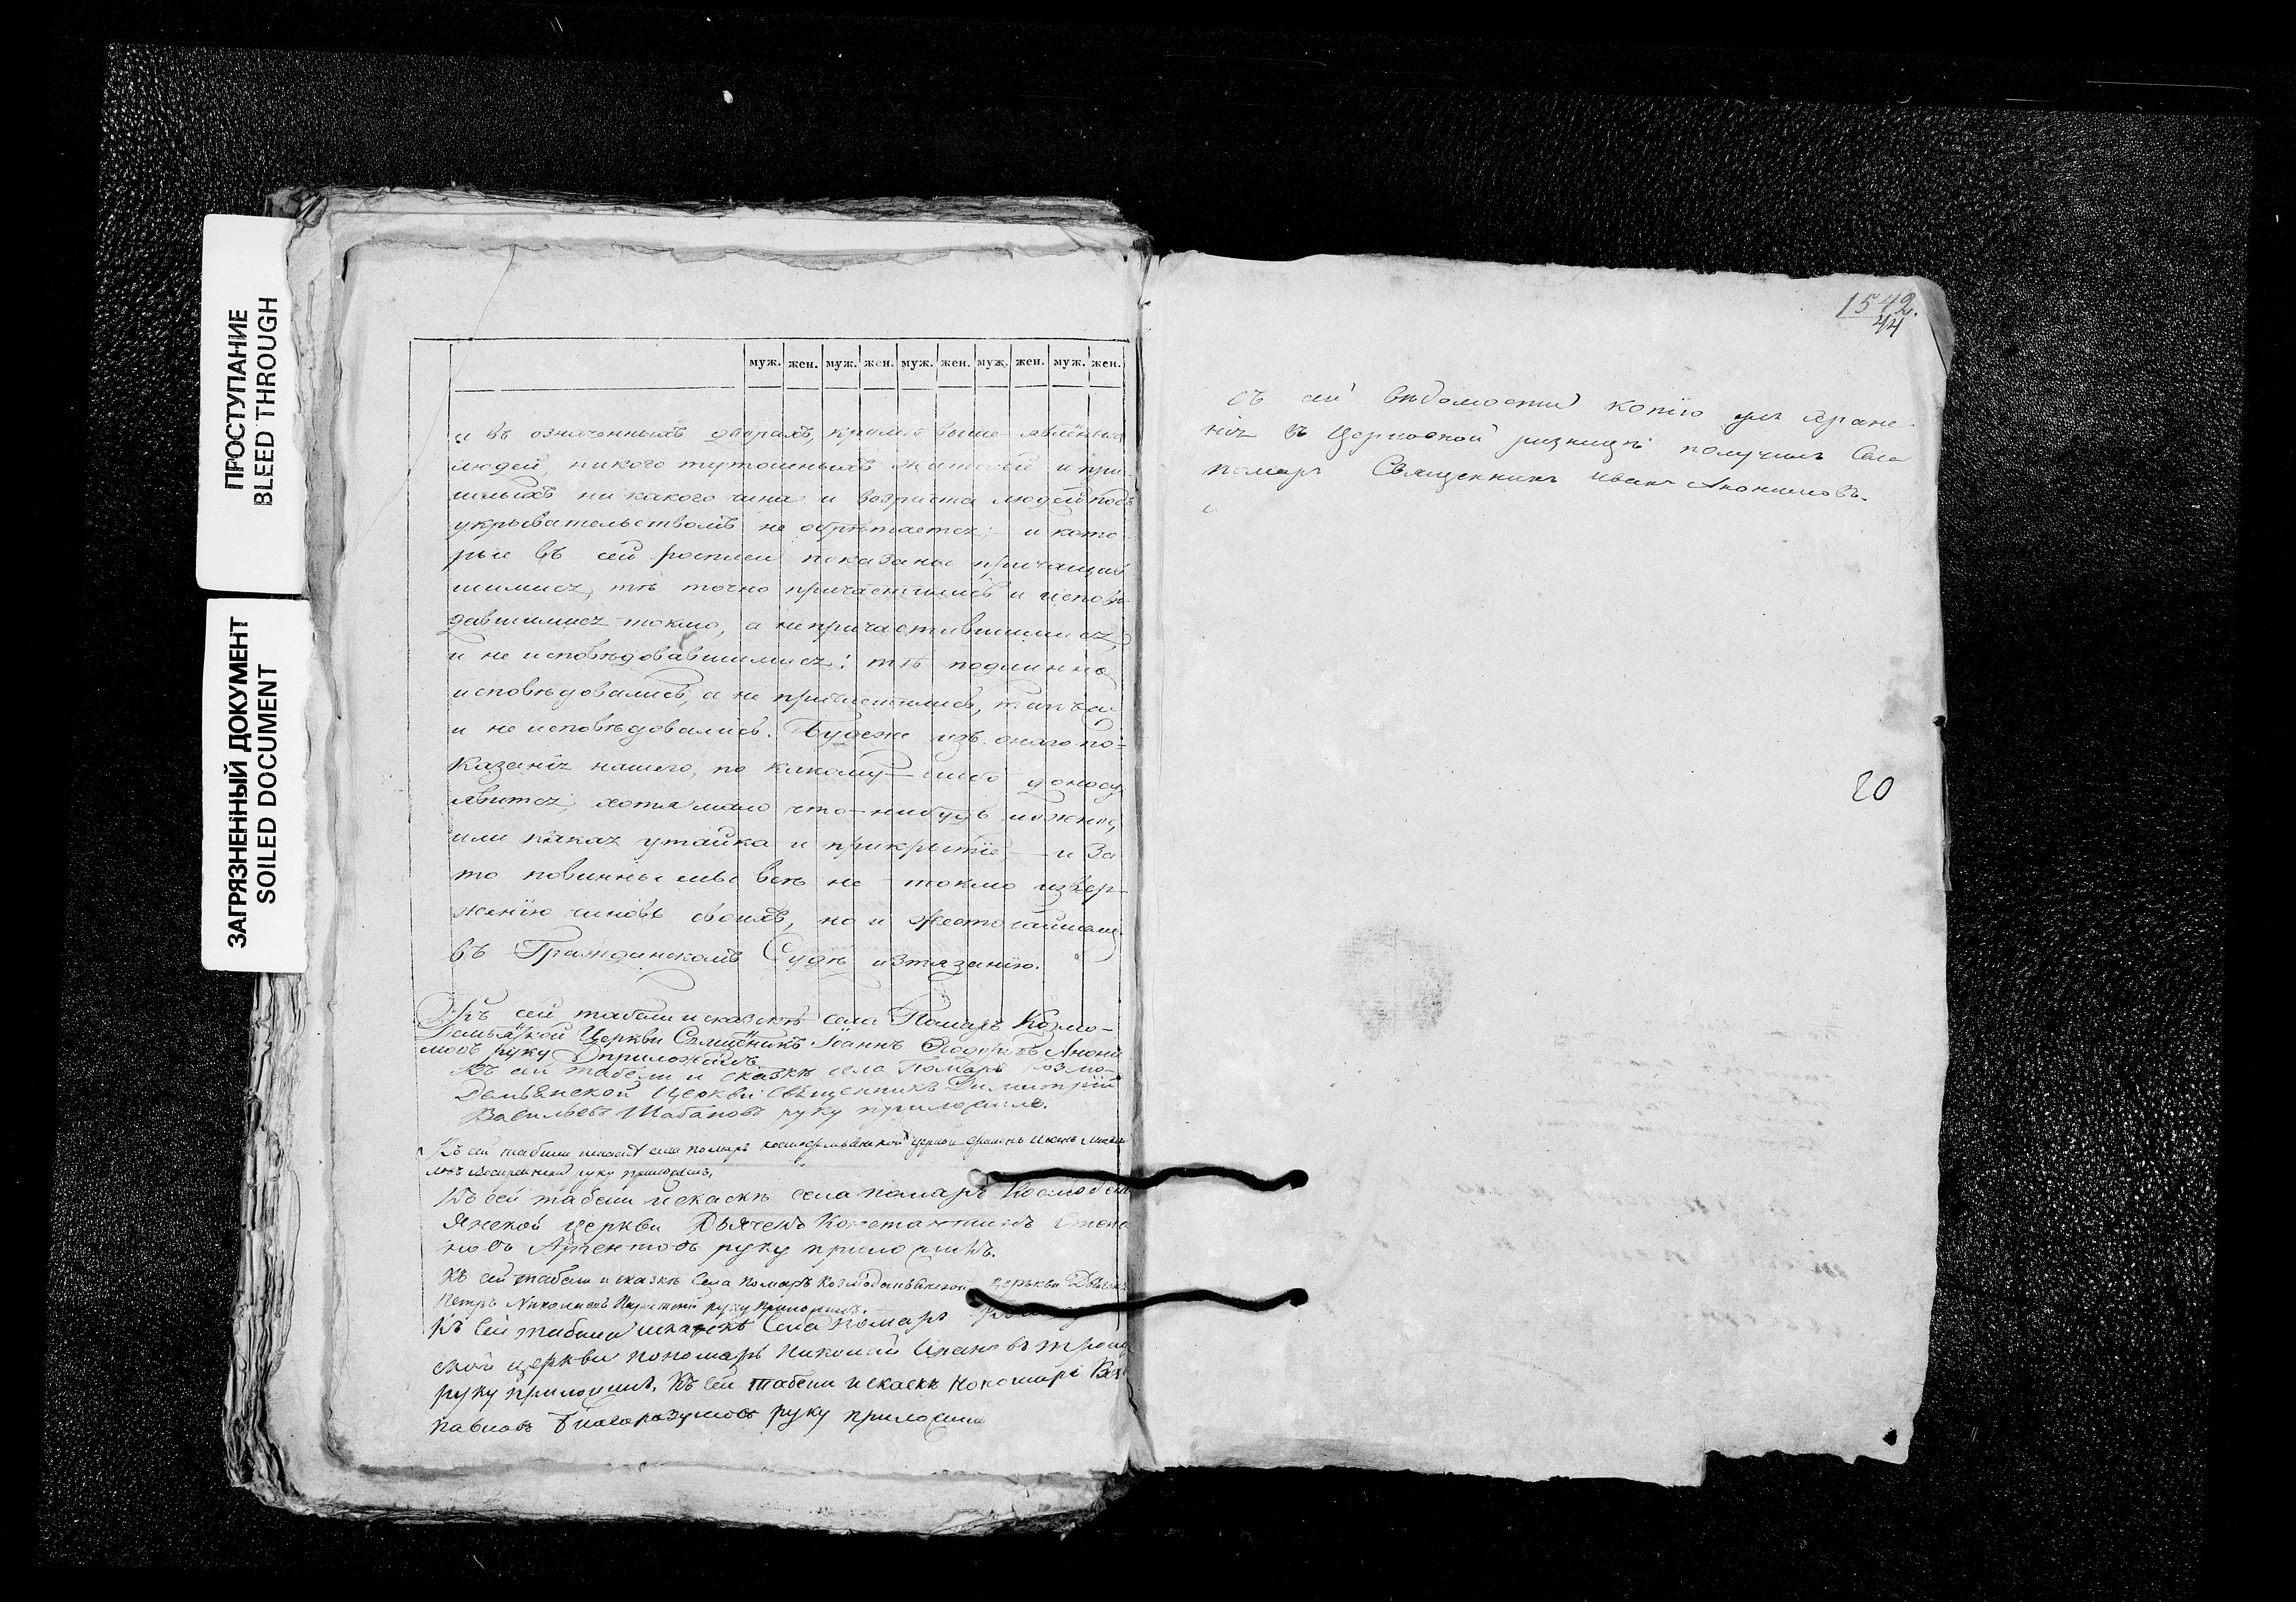 ПРОСТУПАНИЕ
BLEED THROUGH
ЗАГРЯЗНЕННЫЙ ДОКУМЕНТ
SOILED DOCUMENT
муж. жен. муж. жен. муж. жен. муж. жен. муж. жен.
а въ означенныхъ дворахъ, кромѣ выше явленныхъ
людей, никого тутошныхъ жителей и при-
шлыхъ никакого чина и возраста людей подъ
укрывательствомъ не обрѣтается; и кото
рые въ сей росписи показаны причащав
шимися, тѣ точно причастились и исповѣ
давшимися токмо, а непричастившимися,
и не исповѣдовавшимися: тѣ подлинно
исповѣдовались, а не причастились,
и не исповѣдовались. Будеже изъ онаго по-
казанія нашего, по какому-либо доносу
явится, хотя мало что-нибудь ложное,
или какая утайка и прикрытіе и за
то повинны мы всѣ не токмо извер-
женію чиновъ своихъ, но и жесточайшему
въ Гражданскомъ Судѣ изтязанію.
Къ сей табели и сказкѣ села Помаръ Козмо-
церкви Священникъ Іоаннъ
руку приложилъ
Къ сей табели и сказкѣ села Помаръ Козмо-
Демьянской Церкви Священникъ Димитрій
Васильевъ Шабановъ руку приложилъ.
Къ сей табели села помаръ церкви
руку приложилъ.
Къ сей табели и скаскѣ села помаръ Космодем
янской церкви Дьячекъ Константинъ Степа
новъ руку приложилъ.
Къ сей табели и сказкѣ Села Помаръ Козмодемьянской церькви
Петръ Николаевъ руку приложилъ.
Къ сей табели Села помаръ
ской церкви пономарь Николай
руку приложилъ. Къ сей табели и скаскѣ пономарь
павловъ Благоразумовъ руку приложилъ
1542.
44
съ сей вѣдомости копію для хране-
нія въ Церковной ризницѣ получилъ Села
помаръ Священникъ иванъ
20